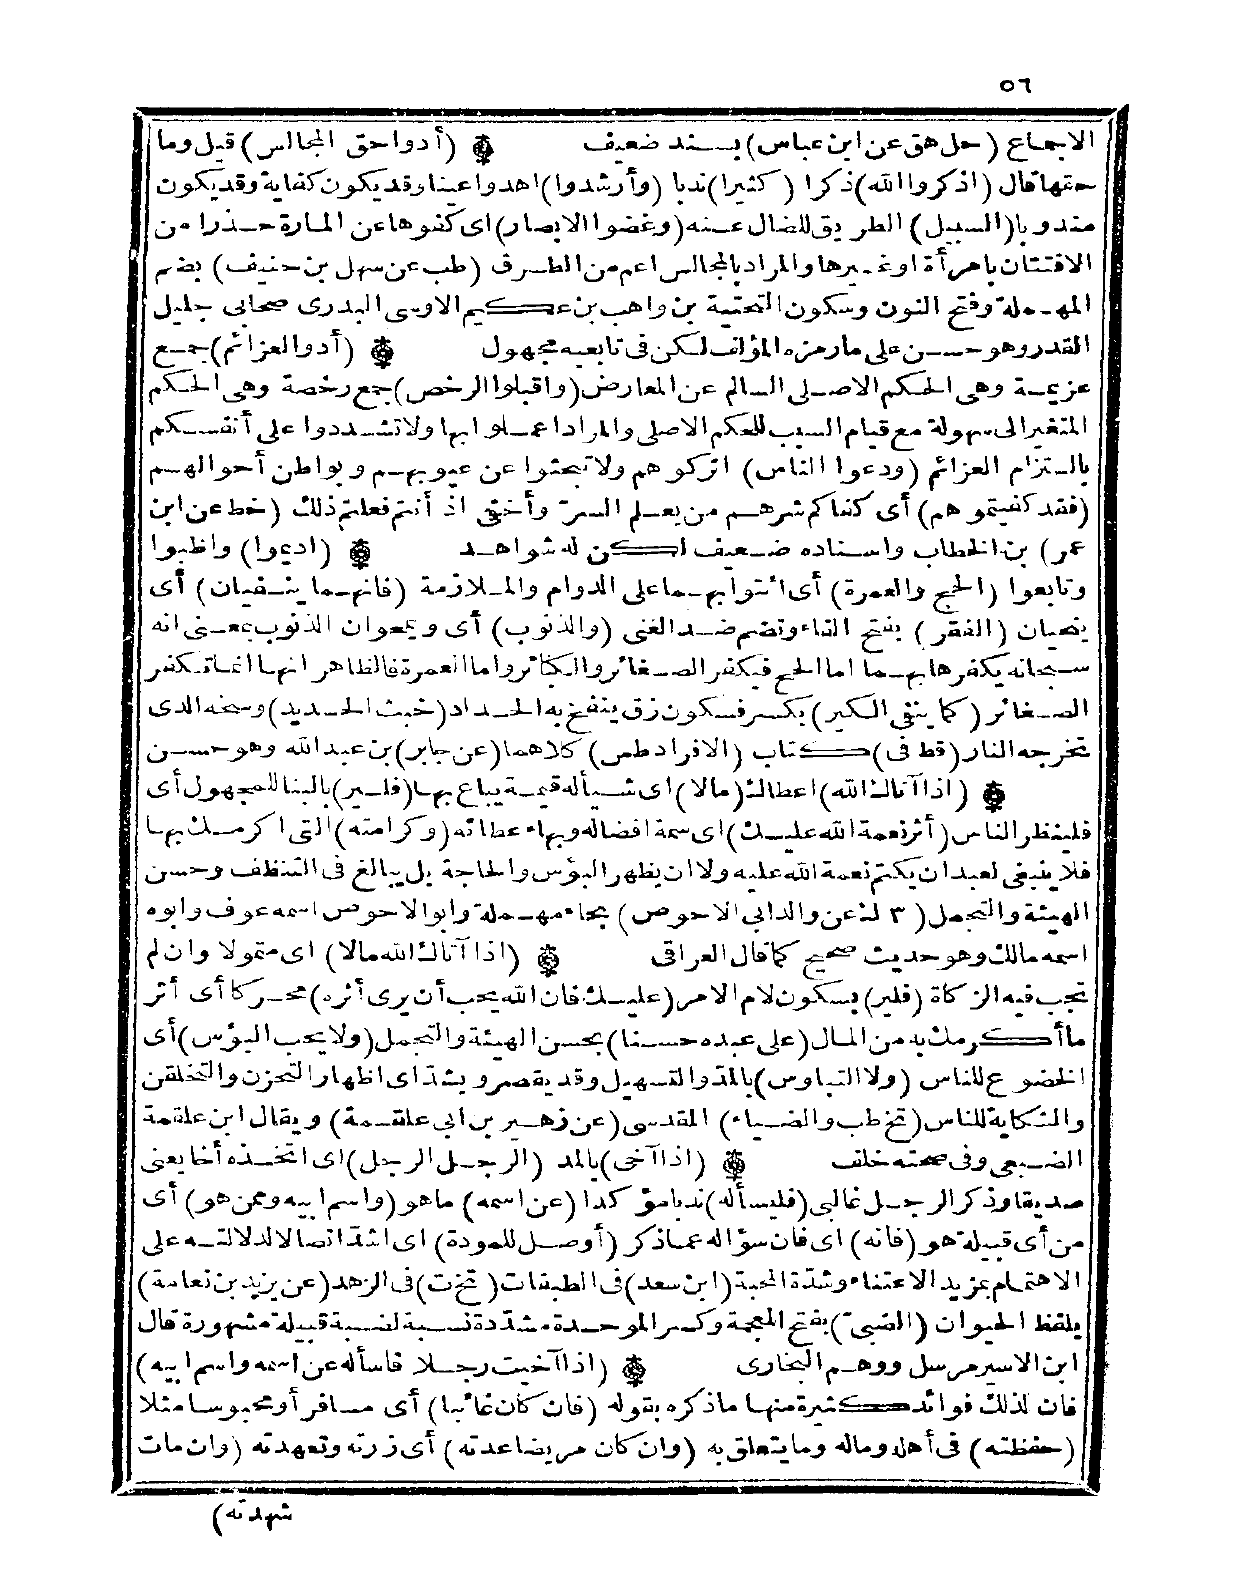 ٥٦
الاجماع (حل هق عن ابن عباس) بسند ضعيف ۞ (أدوا حق المجالس) قيل وما
حقها قال (اذكروا الله) ذكرا (كثيرا) ندبا (وأرشدوا) اهدوا عينا وقد يكون كفاية وقد يكون
مندوبا (السبيل) الطريق للضال عنه (وغضوا الابصار) اى كفوها عن المارة حذرا من
الافتتان بامرأة او غيرها والمراد بالمجالس اعم من الطرق (طب عن سهل بن حنيف) بضم
المهملة وفتح النون وسكون التحتية بن واهب بن عكيم الاوسى البدرى صحابى جليل
القدر وهو حسن على ما رمزه المؤلف لكن فى تابعيه مجهول ۞ (أدوا العزائم) جمع
عزيمة وهى الحكم الاصلى السالم عن المعارض (واقبلوا الرخص) جمع رخصة وهى الحكم
المتغير الى سهولة مع قيام السبب للحكم الاصلى والمراد اعملوا بها ولا تشددوا على أنفسكم
بالتزام العزائم (ودعوا الناس) اتركوهم ولا تبحثوا عن عيوبهم وبواطن أحوالهم
(فقد كفيتموهم) أى كفاكم شرهم من يعلم السر وأخفى اذ أنتم فعلتم ذلك (خط عن ابن
عمر) بن الخطاب واسناده ضعيف لكن له شواهد ۞ (ادعوا) واظبوا
وتابعوا (الحج والعمرة) أى ائتوا بهما على الدوام والملازمة (فانهما ينفيان) أى
ينحيان (الفقر) بفتح الفاء وتضم ضد الغنى (والذنوب) أى ويمحوان الذنوب بمعنى انه
سبحانه يكفرها بهما اما الحج فيكفر الصغائر والكبائر واما العمرة فالظاهر انها انما تكفر
الصغائر (كما ينفى الكير) بكسر فسكون زق ينفخ به الحداد (خبث الحديد) وسخه الذى
تخرجه النار (قط فى) كتاب (الافراد طس) كلاهما (عن جابر) بن عبد الله وهو حسن
۞ (اذا آتاك الله) اعطاك (مالا) اى شيأ له قيمة يباع بها (فلير) بالبنا للمجهول أى
فلينظر الناس (أثر نعمة الله عليك) اى سمة افضاله وبهاء عطائه (وكرامته) التى اكرمك بها
فلا ينبغى لعبد ان يكتم نعمة الله عليه ولا ان يظهر البؤس والحاجة بل يبالغ فى التنظف وحسن
الهيئة والتجمل (٣ ك عن والد ابى الاحوص) بحاء مهملة وابو الاحوص اسمه عوف وابوه
اسمه مالك وهو حديث صحيح كما قال العراقى ۞ (اذا آتاك الله مالا) اى متمولا وان لم
تجب فيه الزكاة (فلير) بسكون لام الامر (عليك فان الله يحب أن يرى أثره) محركا أى أثر
ما أكرمك به من المال (على عبده حسنا) بحسن الهيئة والتجمل (ولا يحب البؤس) أى
الخضوع للناس (ولا التباوس) بالمد والتسهيل وقد يقصر ويشد اى اظهار التحزن والتخلقن
والشكاية للناس (تخ طب والضياء) المقدسى (عن زهير بن ابى علقمة) ويقال ابن علقمة
الضبعى وفى صحبته خلف ۞ (اذا آخى) بالمد (الرجل الرجل) اى اتخذه أخا يعنى
صديقا وذكر الرجل غالبى (فليسأله) ندبا مؤكدا (عن اسمه) ما هو (واسم ابيه وممن هو) أى
من أى قبيلة هو (فانه) اى فان سؤاله عما ذكر (أوصل للمودة) اى اشد اتصالا لدلالته على
الاهتمام بمزيد الاعتناء وشدة المحبة (ابن سعد) فى الطبقات (تخ ت) فى الزهد (عن يزيد بن نعامة)
بلفظ الحيوان (الضبى) بفتح المعجمة وكسر الموحدة مشددة نسبة لضبة قبيلة مشهورة قال
ابن الاسير مرسل ووهم البخارى ۞ (اذا آخيت رجلا فاسأله عن اسمه واسم ابيه)
فان لذلك فوائد كثيرة منها ما ذكره بقوله (فان كان غائبا) أى مسافر أو محبوسا مثلا
(حفظته) فى أهله وماله وما يتعلق به (وان كان مريضا عدته) أى زرته وتعهدته (وان مات
شهدته)